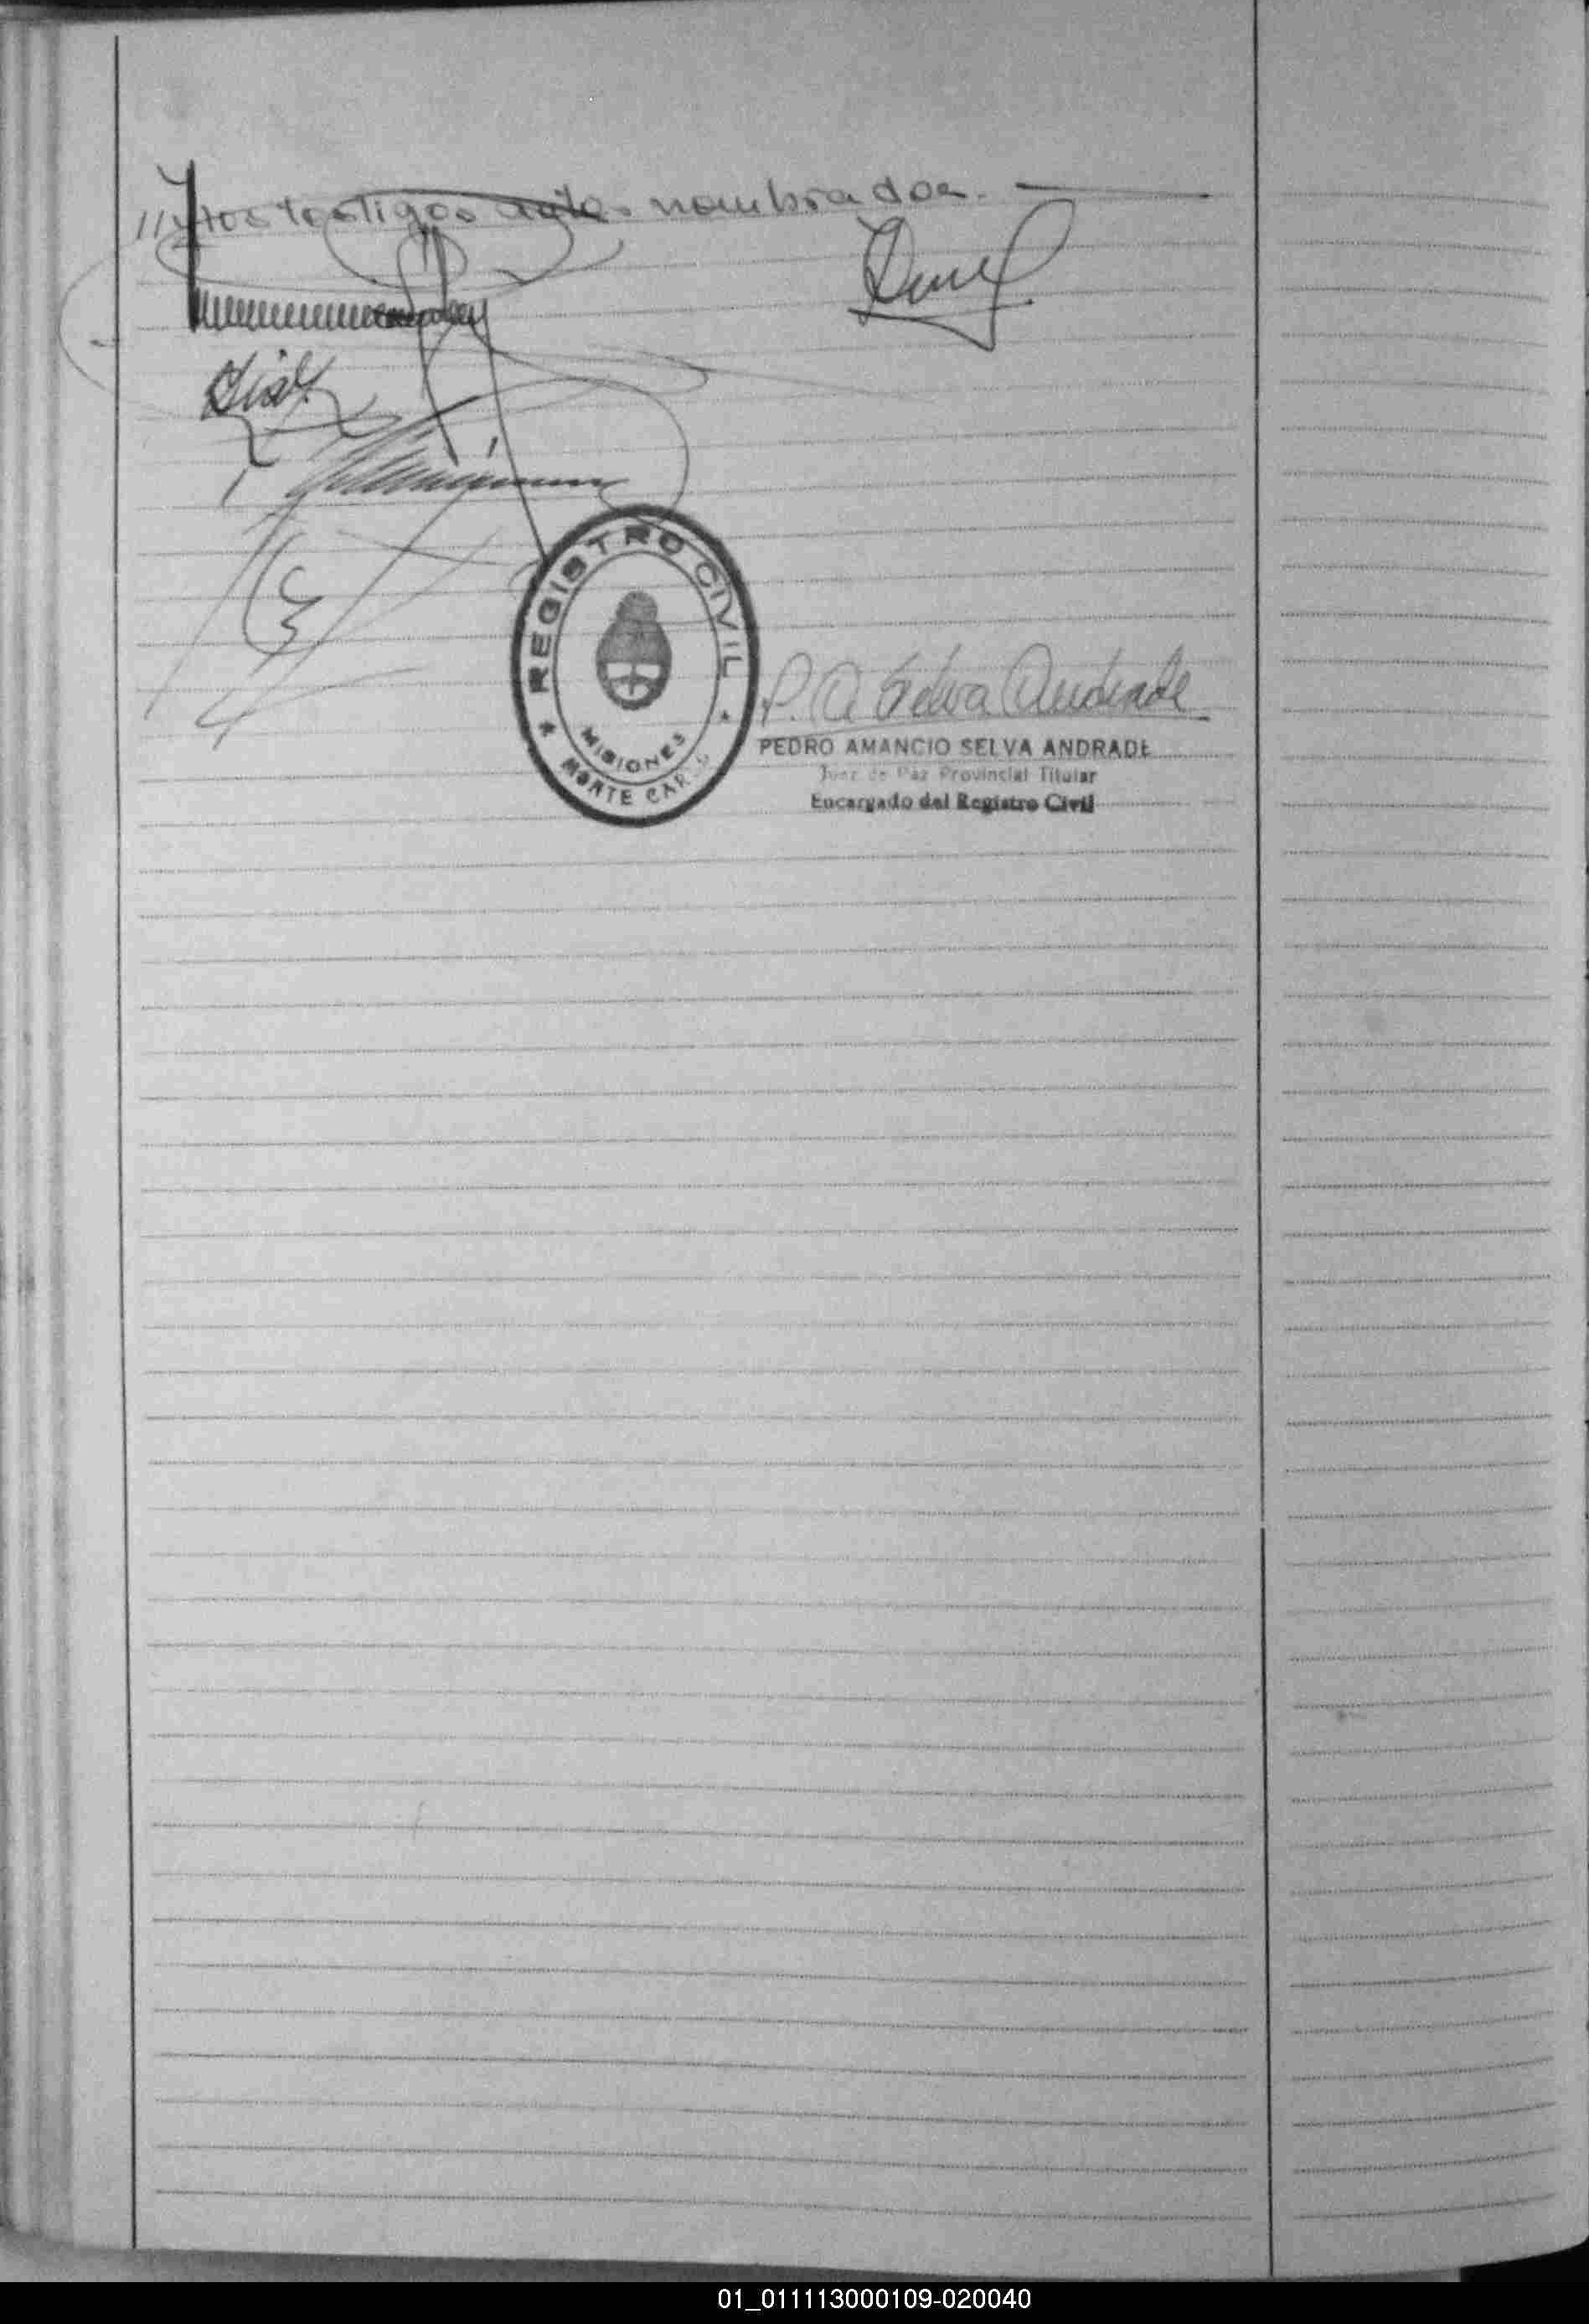 ///y los testigos antes nombrados.
REGISTRO CIVIL
MISIONES
MONTE CARLO
P. A. Selva Andrade
PEDRO AMANCIO SELVA ANDRADE
Juez de Paz Provincial Titular
Encargado del Registro Civil
01_011113000109-020040